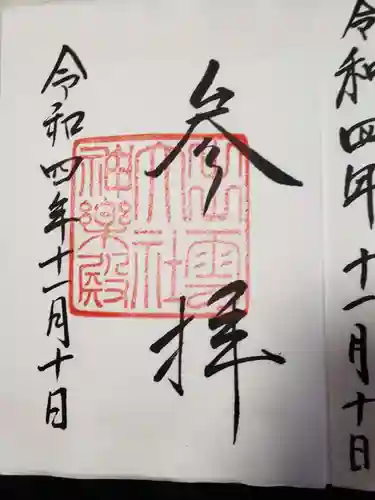 令和四年十一月十日
参拝
出雲
大社
神楽殿
令和四年十一月十日